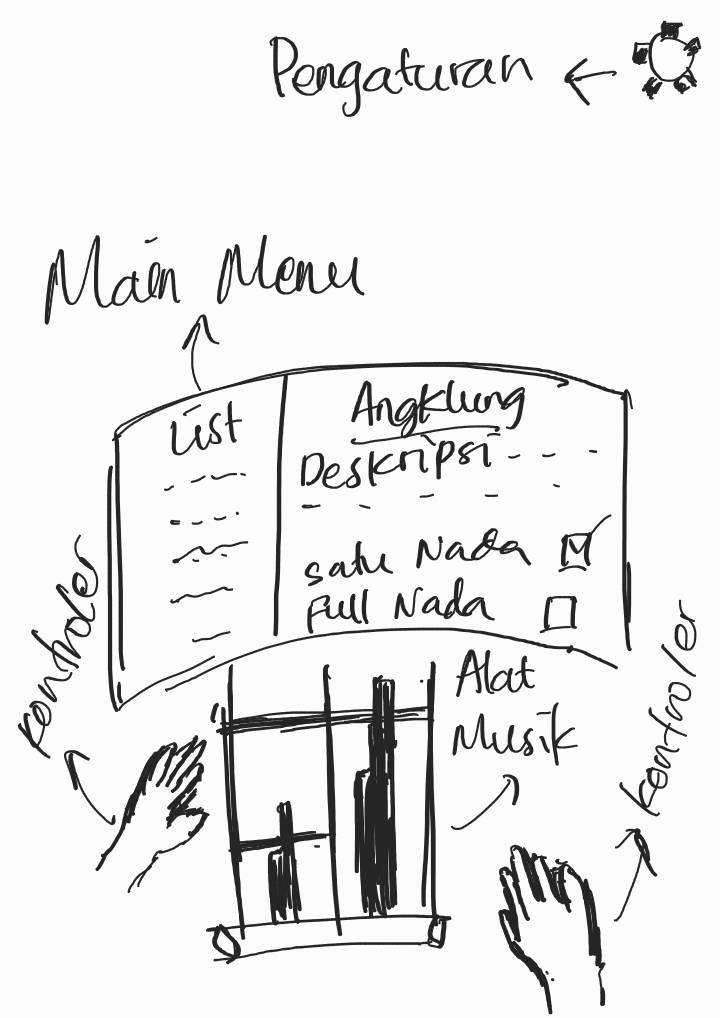 Pengaturan
Main Menu
List
Angklung
Deskripsi
Satu Nada
Full Nada
Kontroler
Alat
Musik
Kontroler